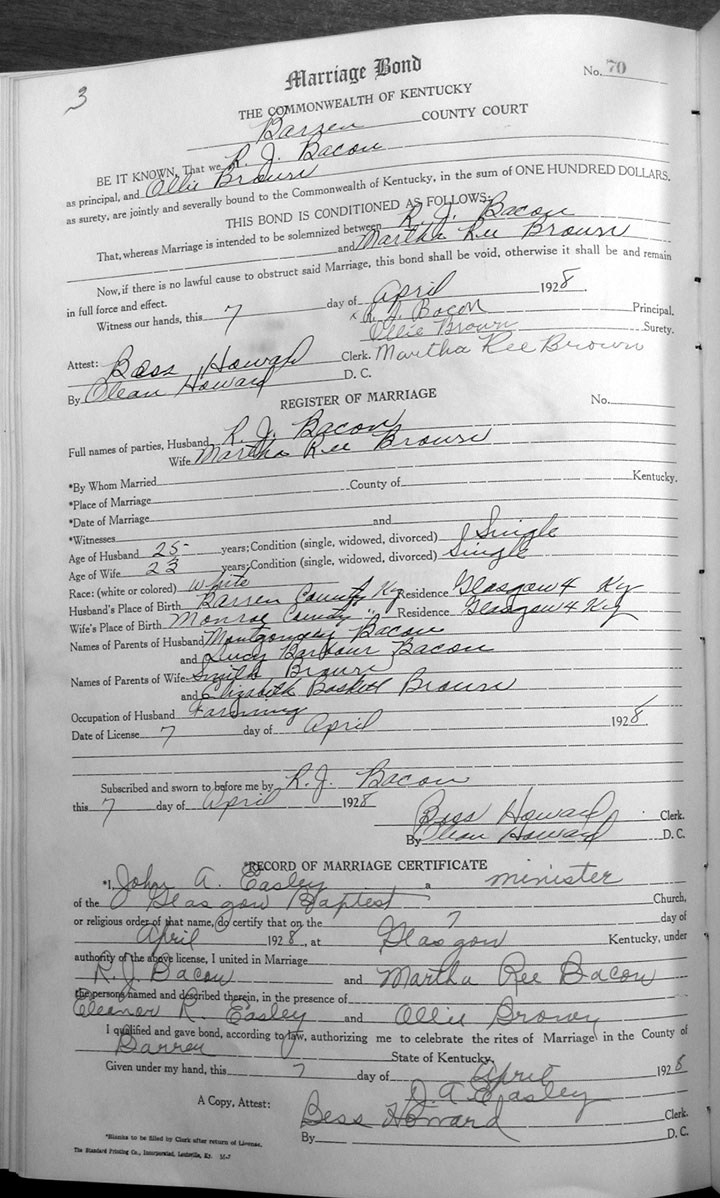 3
Marriage Bond
No. 70
THE COMMONWEALTH OF KENTUCKY
Barren COUNTY COURT
BE IT KNOWN, That we R. J. Bacon
as principal, and Ollie Brown
as surety, are jointly and severally bound to the Commonwealth of Kentucky, in the sum of ONE HUNDRED DOLLARS.
THIS BOND IS CONDITIONED AS FOLLOWS:
That, whereas Marriage is intended to be solemnized between R. J. Bacon
and Martha Ree Brown
Now, if there is no lawful cause to obstruct said Marriage, this bond shall be void, otherwise it shall be and remain
in full force and effect.
Witness our hands, this 7 day of April 1928.
x R. J. Bacon Principal.
Ollie Brown Surety.
Attest: Bess Howard Clerk. Martha Ree Brown
By Clean Howard D. C.
REGISTER OF MARRIAGE
No.
Full names of parties, Husband R. J. Bacon
Wife Martha Ree Brown
*By Whom Married
*Place of Marriage County of Kentucky.
*Date of Marriage
*Witnesses and
Age of Husband 25 years; Condition (single, widowed, divorced) Single
Age of Wife 23 years; Condition (single, widowed, divorced) Single
Race: (white or colored) White
Husband's Place of Birth Barren County, Ky Residence Glasgow 4 Ky
Wife's Place of Birth Monroe County " Residence Glasgow 4 Ky
Names of Parents of Husband Montgomery Bacon
and Lucy Barbour Bacon
Names of Parents of Wife Smith Brown
and Elizabeth Baskett Brown
Occupation of Husband Farming
Date of License 7 day of April 1928.
Subscribed and sworn to before me by R. J. Bacon
this 7 day of April 1928
Bess Howard Clerk.
By Clean Howard D. C.
*RECORD OF MARRIAGE CERTIFICATE
*I, John A. Easley a minister
of the Glasgow Baptest Church,
or religious order of that name, do certify that on the 7 day of
April 1928, at Glasgow Kentucky, under
authority of the above license, I united in Marriage
R. J. Bacon and Martha Ree Bacon
the persons named and described therein, in the presence of
Eleanor R. Easley and Ollie Brown
I qualified and gave bond, according to law, authorizing me to celebrate the rites of Marriage in the County of
Barren State of Kentucky.
Given under my hand, this 7 day of April 1928
J. A. Easley
A Copy, Attest: Bess Howard Clerk.
By D. C.
*Blanks to be filled by Clerk after return of License.
The Standard Printing Co., Incorporated, Louisville, Ky. M-7